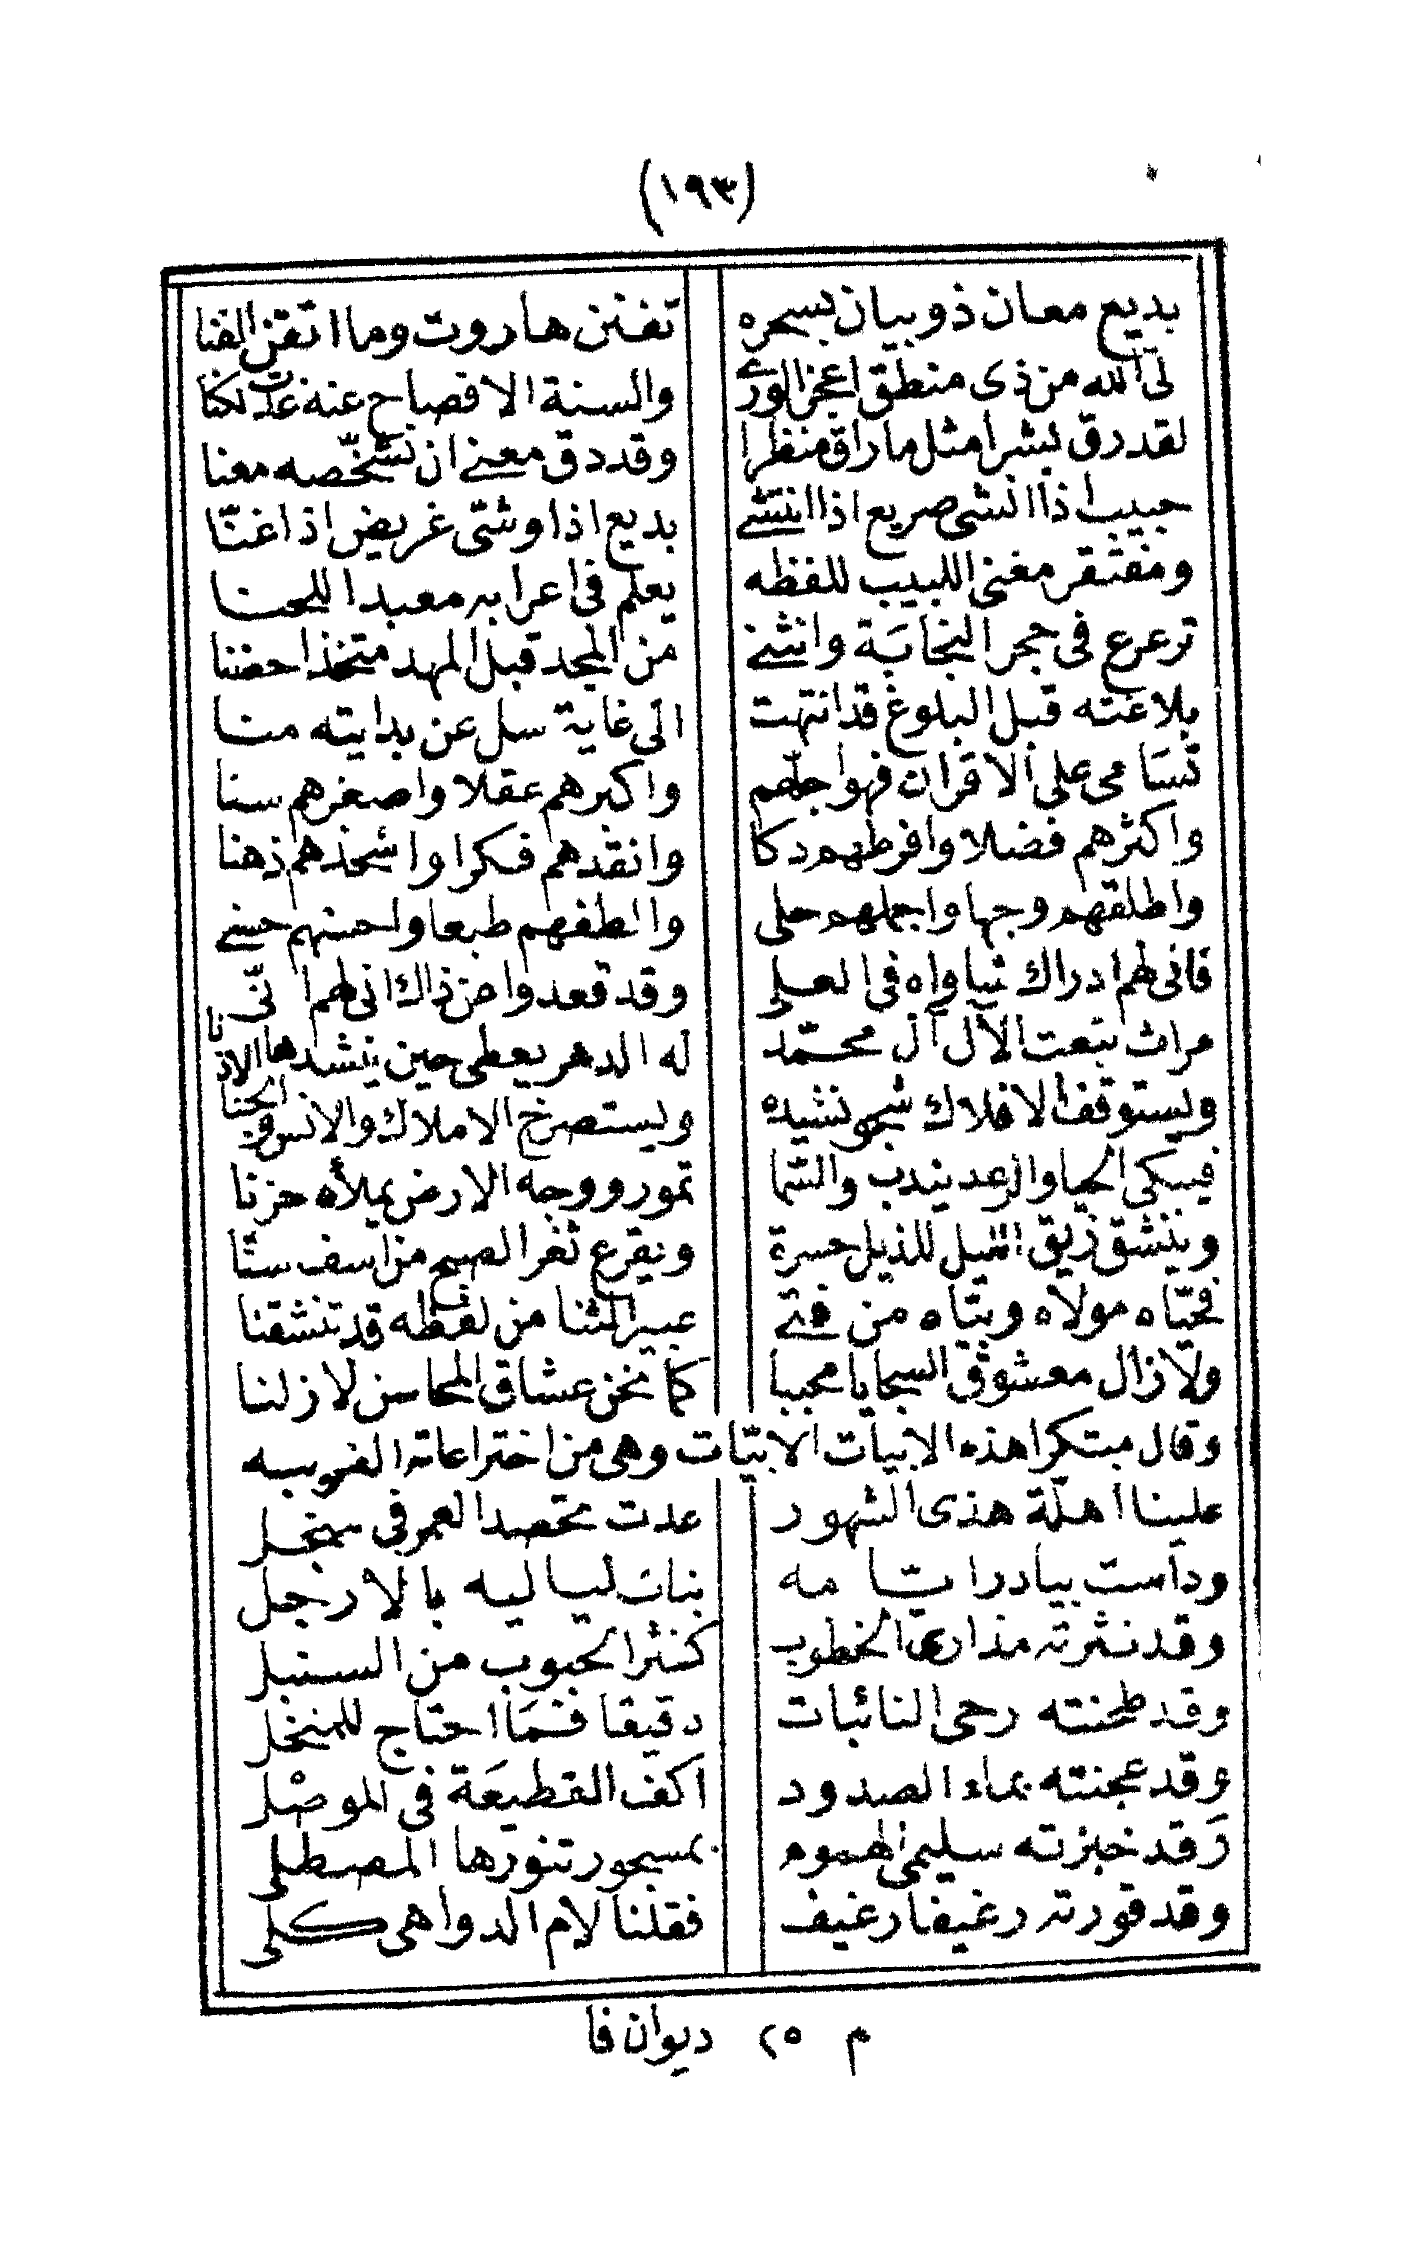 (١٩٣)
بديع معان ذو بيان بسحره تفنن هاروت وما اتقن الفنا
لى الله من ذى منطق اعجز الورى والسنة الافصاح عنه غدت لكنا
لقد رق بشرا مثل ماراق منظرا وقد دق معنى ان نشخّصه معنا
حبيب اذا انشى صريع اذا انتشى بديع اذا وشّى غريض اذا غنّا
ومفتقر مغنى اللبيب للفظه يعلم فى اعرابه معبدا اللحنا
ترعرع فى حجر النجابَة وانثنى من المجد قبل المهد متخذا حضنا
بلاغته قبل البلوغ قد انتهت الى غاية سل عن بدايته منا
تسَامى على الاقران فهو اجلّهم واكبرهم عقلا واصغرهم سنا
واكثرهم فضلا وافرطهم دكا وانقدهم فكرا واشحذهم ذهنا
واطلقهم وجها واجملهم حلى والطفهم طبعا واحسنهم حسنى
فانى لهم ادراك شاواه فى العلى وقد قعدوا من ذاك انى لهم انّى
مراث بنعت الآل آل محمّد له الدهر يعطى حين ينشدها الاذنا
ويستوقف الافلاك شجو نشيده ويستصرخ الاملاك والانس والجنا
فيبكى الحيا والرعد يندب والسّما تمور ووجه الارض يملأه حزنا
وينشق زيق الليل للذيل حسرة ويقرع ثغر الصبح من اسف سنّا
فحيّاه مولاه وبيّاه من فتى عبير الثنا من لفظه قد تنشقنا
ولا زال معشوق السجايا محببا كما نحن عشاق المحاسن لا زلنا
وقال مبتكرا هذه الابيات الابيّات وهى من اختراعاته الغريبه
علينا اهلّة هذى الشهور غدت تحصد العمر فى منجل
وداست بيادر ايّامه بنات لياليه بالارجل
وقد نثرته مذارى الخطوب كنثر الحبوب من السنبل
وقد طحنته رحى النائبات دقيقا فمَا احتاج للمنخل
وقد عجنته بماء الصدود اكف القطيعَة فى الموصْل
وقد خبزته سليمى الهموم بمسجور تنورها المصطلى
وقد قورته رغيفا رغيف فقلنا لام الدواهى كلى
م ٢٥ ديوان فا